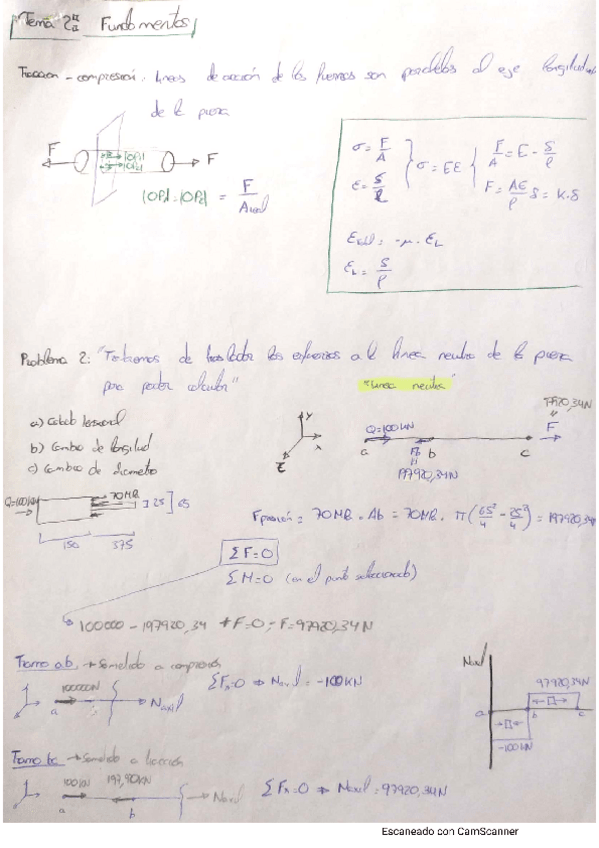 Tema 2: Fundamentos
Traccion-compresión: líneas de acción de las fuerzas son paralelas al eje longitudinal
de la pieza
F |OP1| |OP2| F
|OP1|=|OP2| = F/Aaxial
σ = F/A
ε = δ/l
σ = Eε
F/A = E - δ/l
F = AE/l δ = K·δ
= -μ · εL
εL = δ/l
Problema 2: "Trataremos de trasladar los esfuerzos a la línea neutra de la pieza
para poder calcular" "línea neutra"
a) Estado tensional
b) Cambio de longitud
c) Cambio de diametro
y x z
Q=100KN 97920,34N F
a b c
197920,34N
Q=100KN 70MPa 25 65
150 375
Fpresión = 70MPa · Ab = 70MPa · π(65²/4 - 25²/4) = 197920,34N
ΣF=0
ΣM=0 (en el punto seleccionado)
100000 - 197920,34 + F=0; F=97920,34N
Tramo ab → Sometido a compresión
100000N a Naxial
ΣFx=0 ⇒ Naxial = -100KN
Naxial
97920,34N
a b c
-100KN
Tramo bc → Sometido a tracción
100KN 197,90KN Naxil
a b
ΣFx=0 ⇒ Naxil = 97920,34N
Escaneado con CamScanner